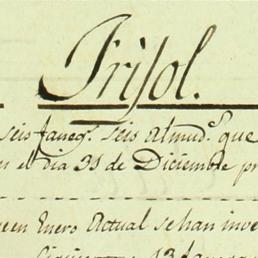 Frisol.
seis faneg.s seis almud.s que
en el dia 31 de Diciembre pr
en Enero Actual se han inve
13 fanegas